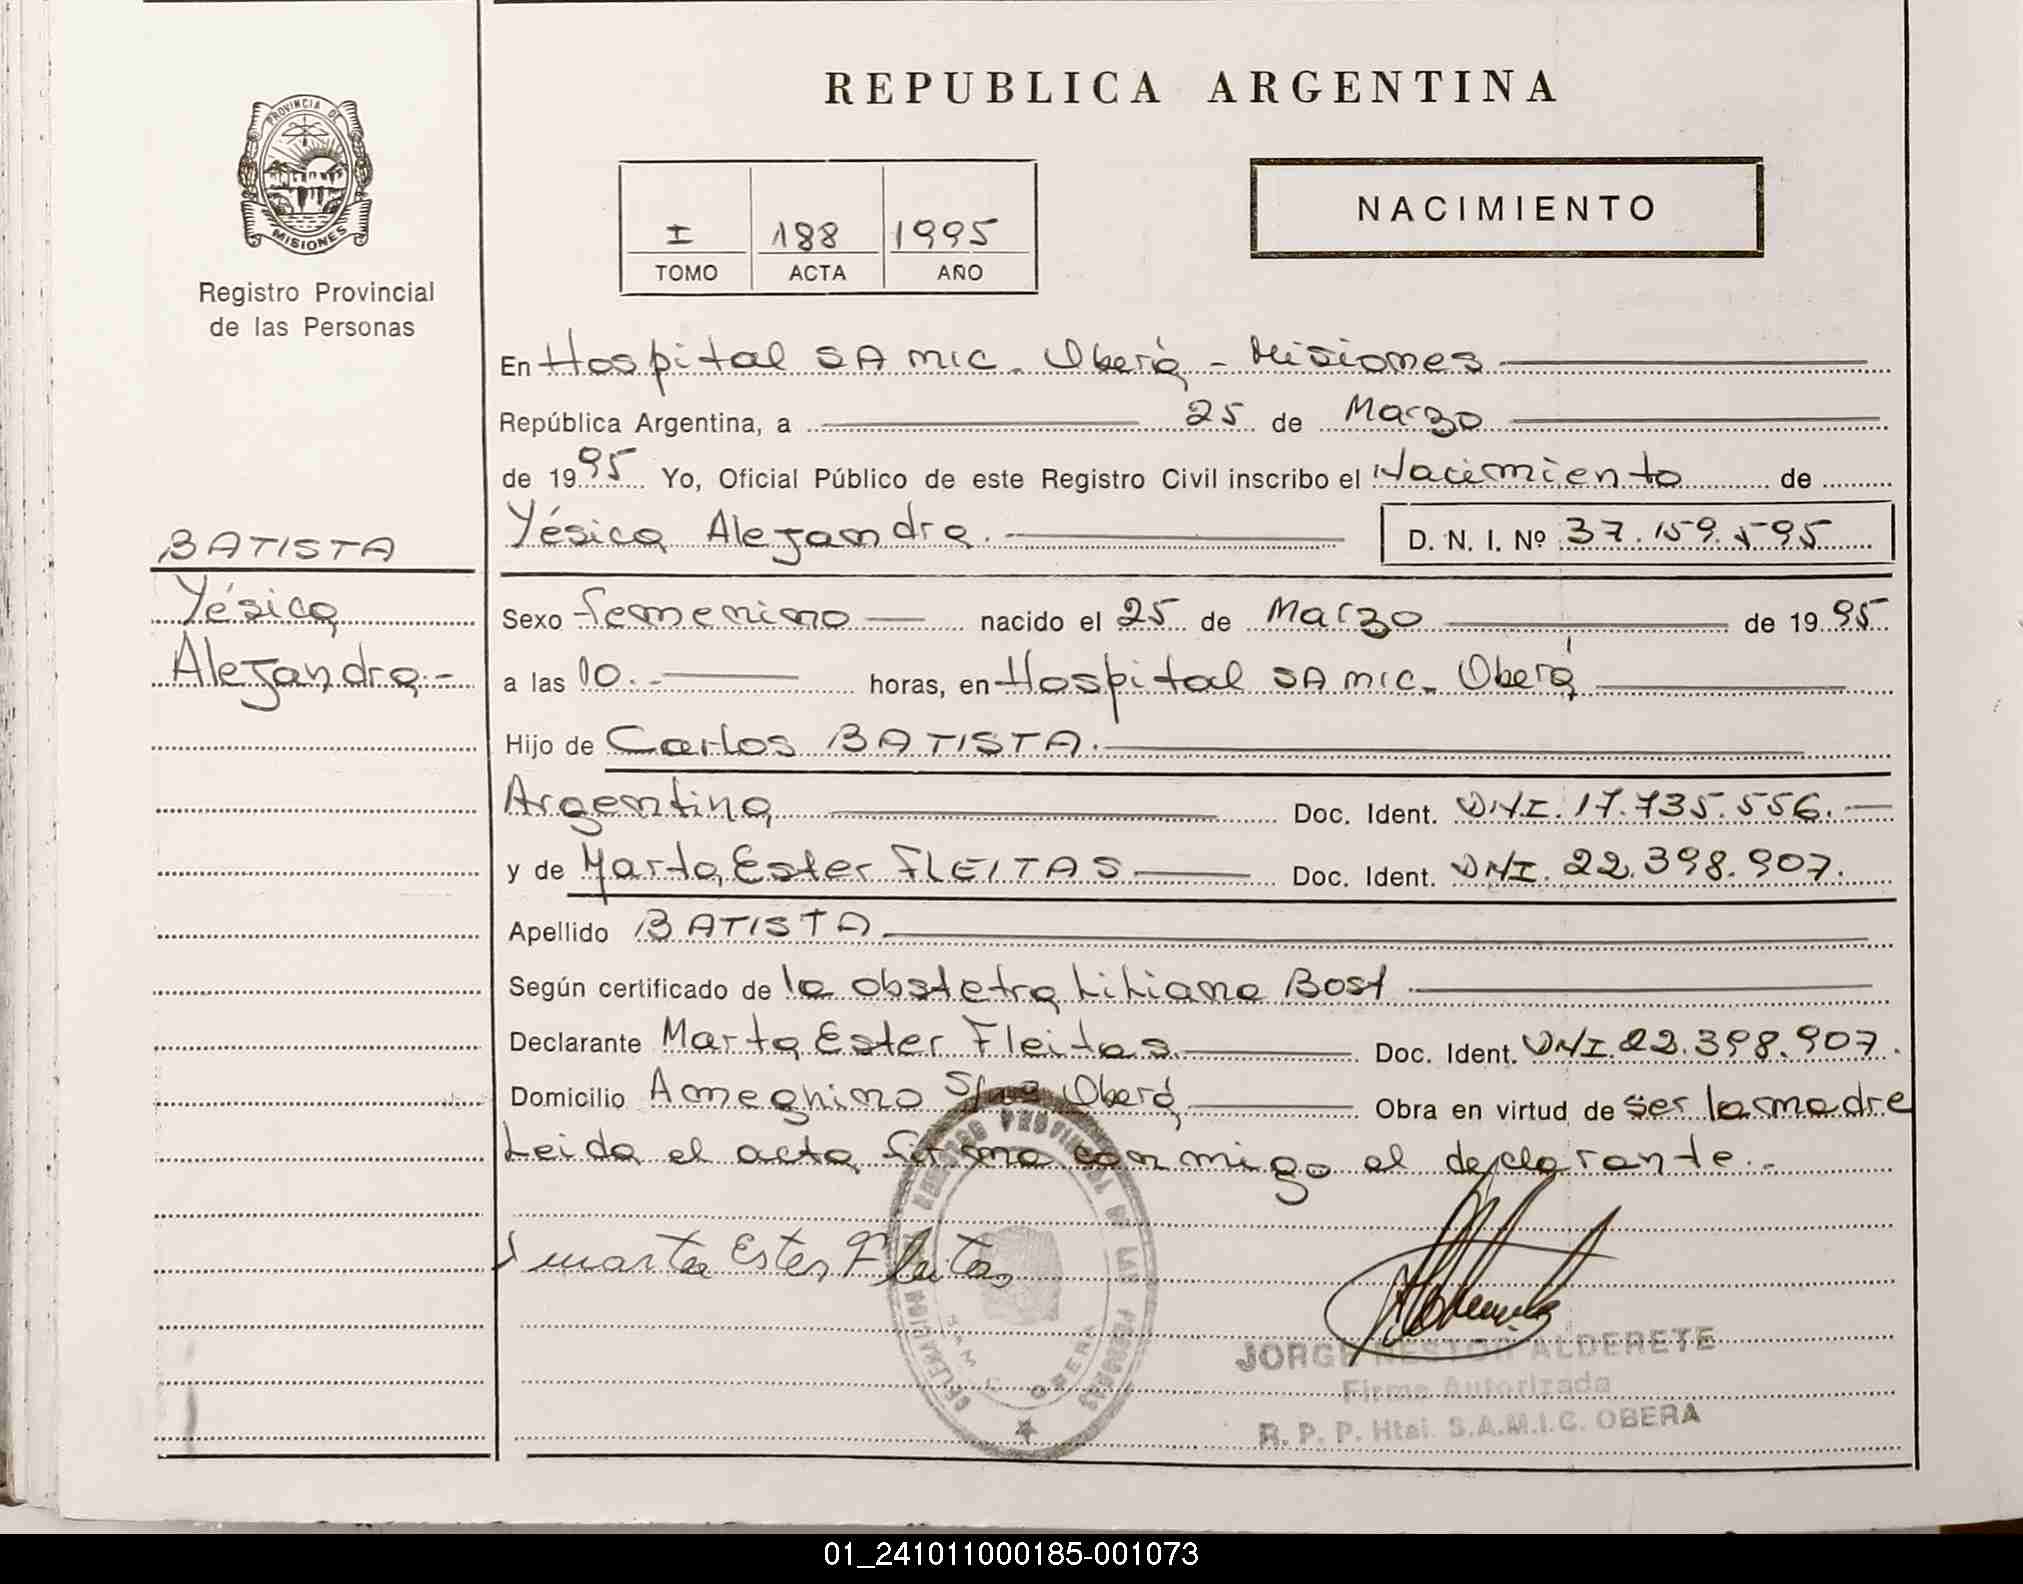 REPUBLICA ARGENTINA
PROVINCIA DE
MISIONES
Registro Provincial
de las Personas
NACIMIENTO
I 188 1995
TOMO ACTA AÑO
En Hospital SAMIC. Oberá - Misiones
República Argentina, a 25 de Marzo
de 1995 Yo, Oficial Público de este Registro Civil inscribo el Nacimiento de
Yésica Alejandra. D. N. I. Nº 37.159.595
BATISTA
Yésica
Alejandra.-
Sexo femenino nacido el 25 de Marzo de 1995
a las 10.- horas, en Hospital SAMIC. Oberá
Hijo de Carlos BATISTA.
Argentina Doc. Ident. DNI. 17.735.556.
y de Marta Ester FLEITAS Doc. Ident. DNI. 22.398.907.
Apellido BATISTA
Según certificado de la obstetra Liliana Bost
Declarante Marta Ester Fleitas. Doc. Ident. DNI. 22.398.907.
Domicilio Ameghino S/nº Oberá Obra en virtud de ser la madre
Leida el acta firma conmigo el declarante.-
Marta Ester Fleitas
PROVINCIAL DE LAS PERSONAS
DELEGACION
OBERA
JORGE NESTOR ALDERETE
Firma Autorizada
R. P. P. Htal. S.A.M.I.C. OBERA
01_241011000185-001073